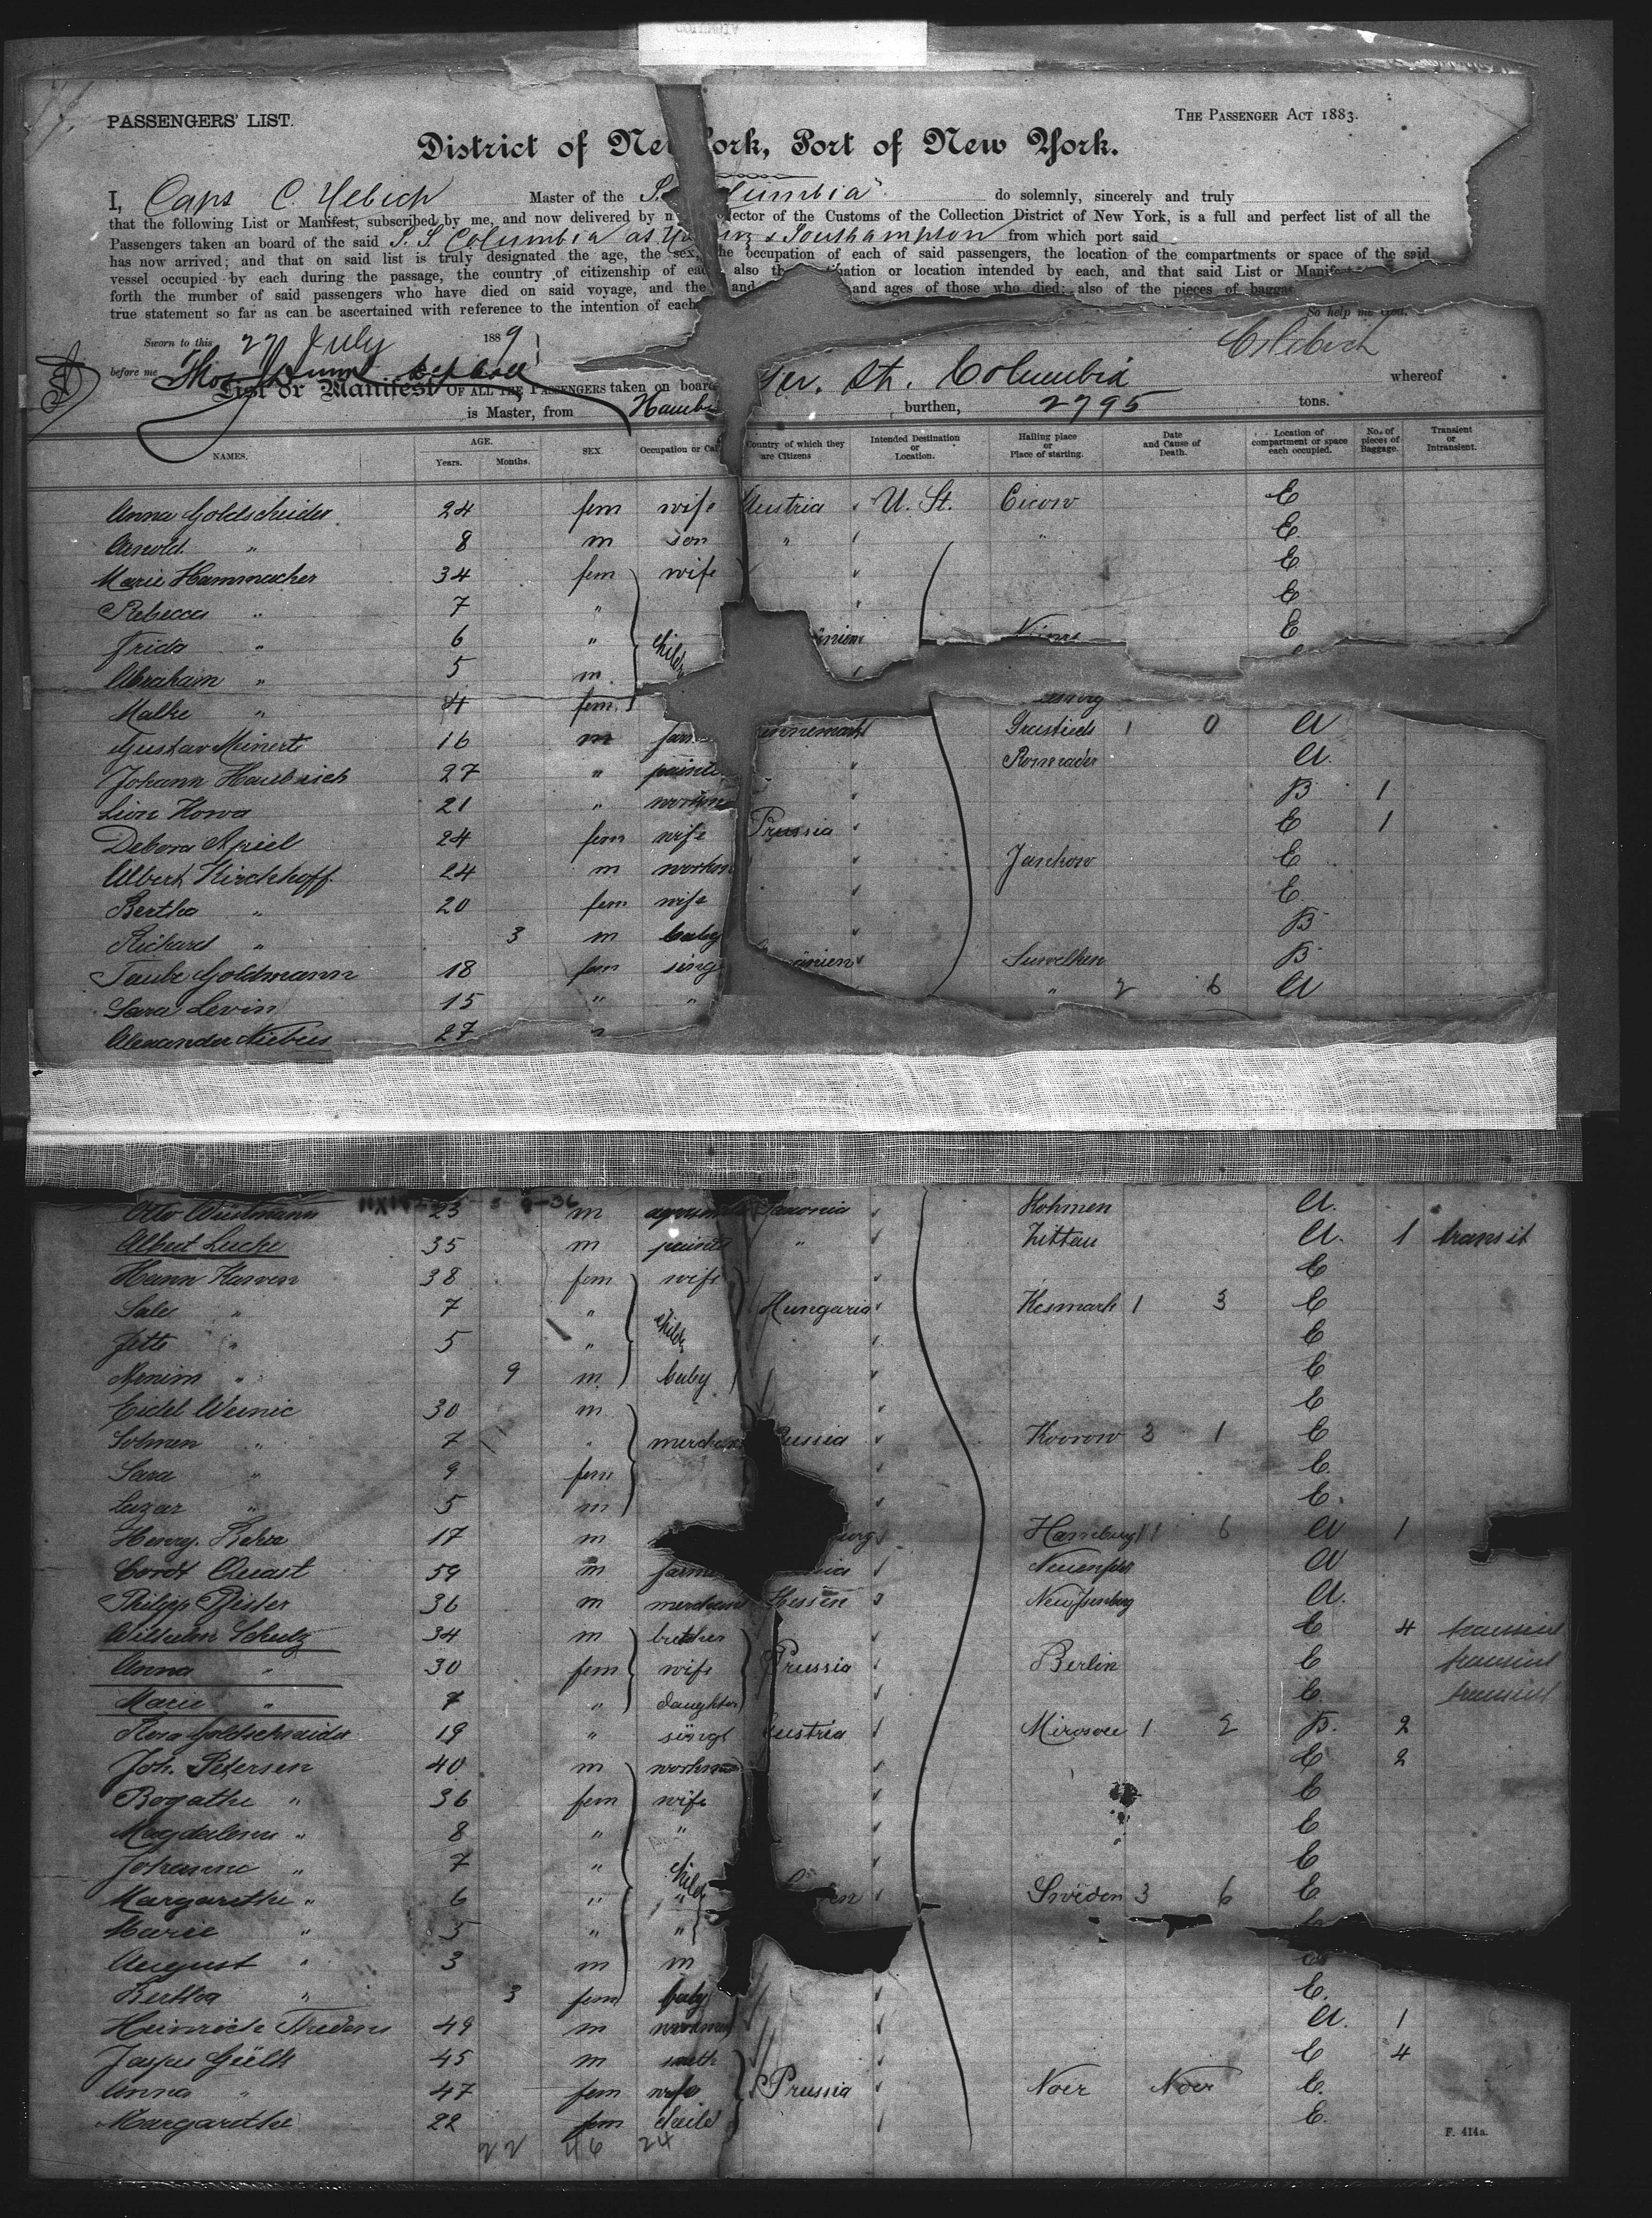 PASSENGERS' LIST.
THE PASSENGER ACT 1883.
District of New York, Port of New York.
I, Capt C. Hebich Master of the S. lumbia do solemnly, sincerely and truly
that the following List or Manifest, subscribed by me, and now delivered by m lector of the Customs of the Collection District of New York, is a full and perfect list of all the
Passengers taken an board of the said S. S. Columbia & Southampton from which port said
has now arrived; and that on said list is truly designated the age, the sex, the occupation of each of said passengers, the location of the compartments or space of the said
vessel occupied by each during the passage, the country of citizenship of each also th nation or location intended by each, and that said List or Manifest
forth the number of said passengers who have died on said voyage, and the and and ages of those who died: also of the pieces of baggag
true statement so far as can be ascertained with reference to the intention of each
So help me God.
Sworn to this 27 July 1889
CHebich
before me
List or Manifest OF ALL THE PASSENGERS taken on board Ger. St. Columbia whereof
is Master, from Hamb burthen, 2795 tons.
NAMES. AGE. Years. Months. SEX. Occupation or Cal Country of which they are Citizens Intended Destination or Location. Hailing place or Place of starting. Date and Cause of Death. Location of compartment or space each occupied. No. of pieces of Baggage. Transient or Intransient.
Anna Goldscheider 24 fem wife Austria U. St. Cicow E
Arnold " 8 m son " " E
Marie Hammacher 34 fem wife E
Rebecca " 7 " E
Frida " 6 " Childr änien E
Abraham " 5 m
Malke " 4 fem
Gustav Meinert 16 m far ennemark 1 0 A
Johann Haubrich 27 " painte A
Lion Kowa 21 " workm B 1
Debora Apiel 24 fem wife Prussia E 1
Albert Kirchhoff 24 m workm Janchow E
Bertha " 20 fem wife E
Richard " 3 m baby B
Taube Goldmann 18 fem sing änien Suwalken B
Sara Levin 15 " " " 2 6 A
Alexander Niebus 27 "
Otto Wüstmann 23 m Saxonia Kohmen A.
Albert Lucke 35 m painte " Zittau A. 1 transit
Hann Karven 38 fem wife E
Sale " 7 " Childr Hungaria Kesmark 1 3 E
Jette " 5 " E
" 9 m baby E
Eidel Weinic 30 m E
Solmen " 7 " merchan ussia Koorow 3 1 E
Sara " 9 fem E.
Lazar " 5 m E.
Henry Behre 17 m urg Hamburg 1 6 A 1
Cordt Quast 59 m farme A
Philipp Pfister 36 m merchant Hessen Neu Isenburg A.
Wilhelm Schulz 34 m butcher E 4 transient
Anna " 30 fem wife Prussia Berlin E transient
Marie " 7 " daughter E. transient
Rosa Goldschneider 19 " singl ustria Mirosov 1 2 B. 2
Joh. Petersen 40 m workman E 2
Bogathe " 36 fem wife E
Magdalena " 8 " " E
Johanne " 7 " Childr E
Margarethe " 6 " " en Sweden 3 6 E
Marie " 5 " " E
August " 3 m m E
Bertha " 3 fem baby E.
Heinrich Thedens 49 m workman A. 1
Jasper Gülk 45 m smith E 4
Anna " 47 fem wife Prussia Noer Noer E.
Margarethe 22 fem child E.
22 46 24
F. 414a.